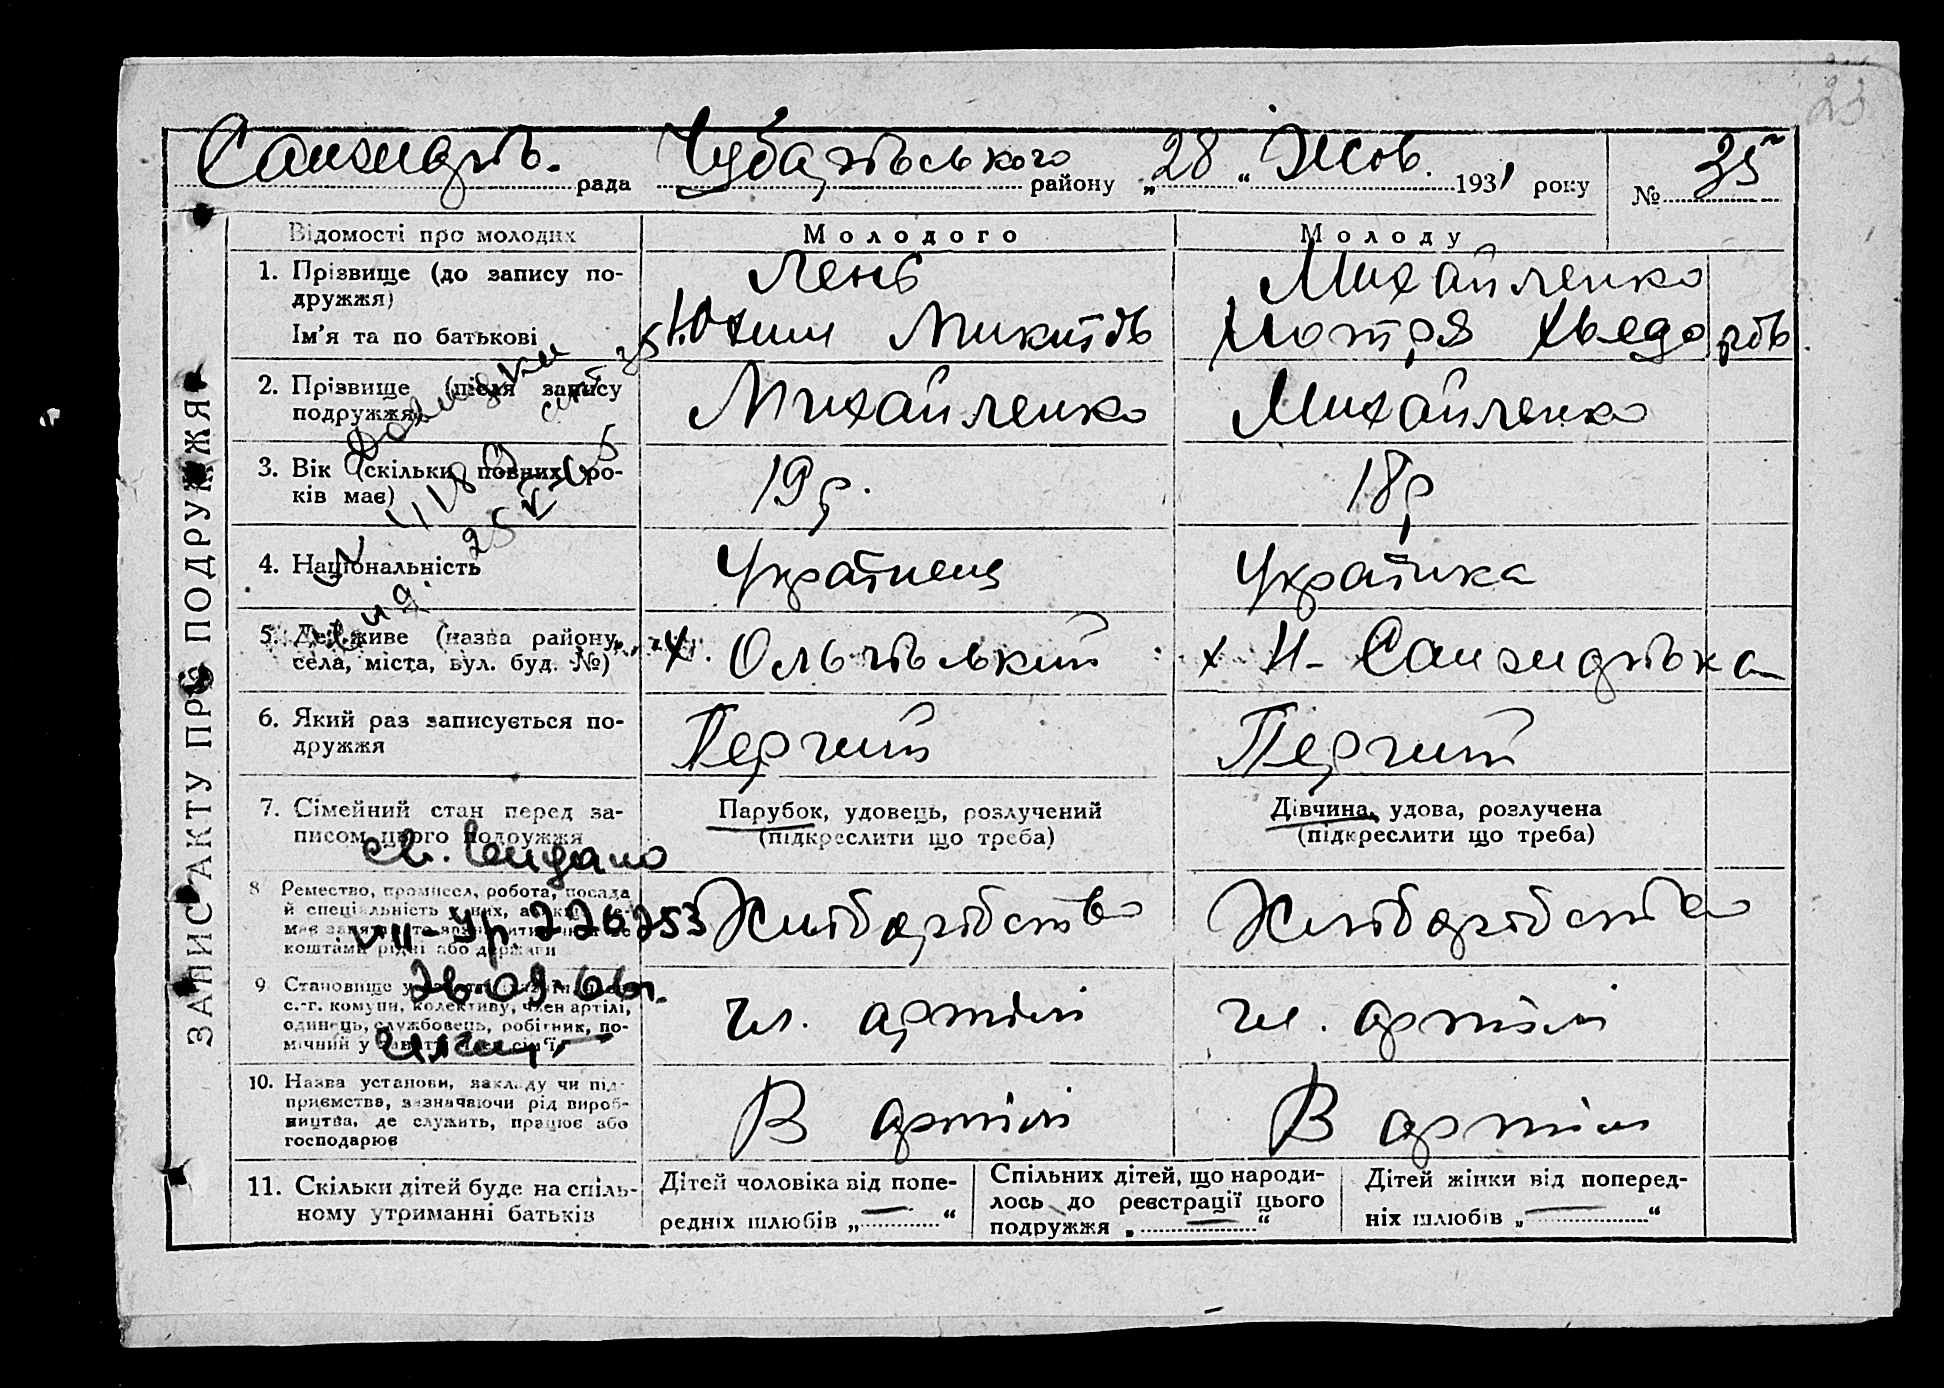 23
Санжарів. рада Чубарівського району „28“ Жов. 1931 року № 35
ЗАПИС АКТУ ПРО ПОДРУЖЖЯ
Відомості про молодих Молодого Молоду
1. Прізвище (до запису по-
дружжя)
Лень Михайленко
Ім'я та по батькові
Юхим Микитів Мотря Хведорів.
2. Прізвище (після запису
подружжя)
Михайленко Михайленко
3. Вік (скільки повних ро-
ків має)
19 р. 18 р
4. Національність
Українець Українка
5. Де живе (назва району,
села, міста, вул. буд. №)
х. Ольгівський х Н- Санжарівка
6. Який раз записується по-
дружжя
Перший Перший
7. Сімейний стан перед за-
писом цього подружжя
Парубок, удовець, розлучений
(підкреслити що треба)
Дівчина, удова, розлучена
(підкреслити що треба)
св. видано
8 Ремество, промисел, робота, посада
й спеціальність
коштами рідні або держави
VII-Ур. 220253
Хліборобство Хліборобство
9 Становище у
с.-г. комуни, колективу, член артілі,
одинець, службовець, робітник, по-
мічний у
28 09 66г.
чл. артілі чл. артілі
10. Назва установи, закладу чи під-
приємства, зазначаючи рід вироб-
ництва, де служить, працює або
господарює
В артілі В артілі
11. Скільки дітей буде на спіль-
ному утриманні батьків
Дітей чоловіка від попе-
редніх шлюбів „ — “
Спільних дітей, що народи-
лось до реєстрації цього
подружжя „ — “
Дітей жінки від поперед-
ніх шлюбів „ — “